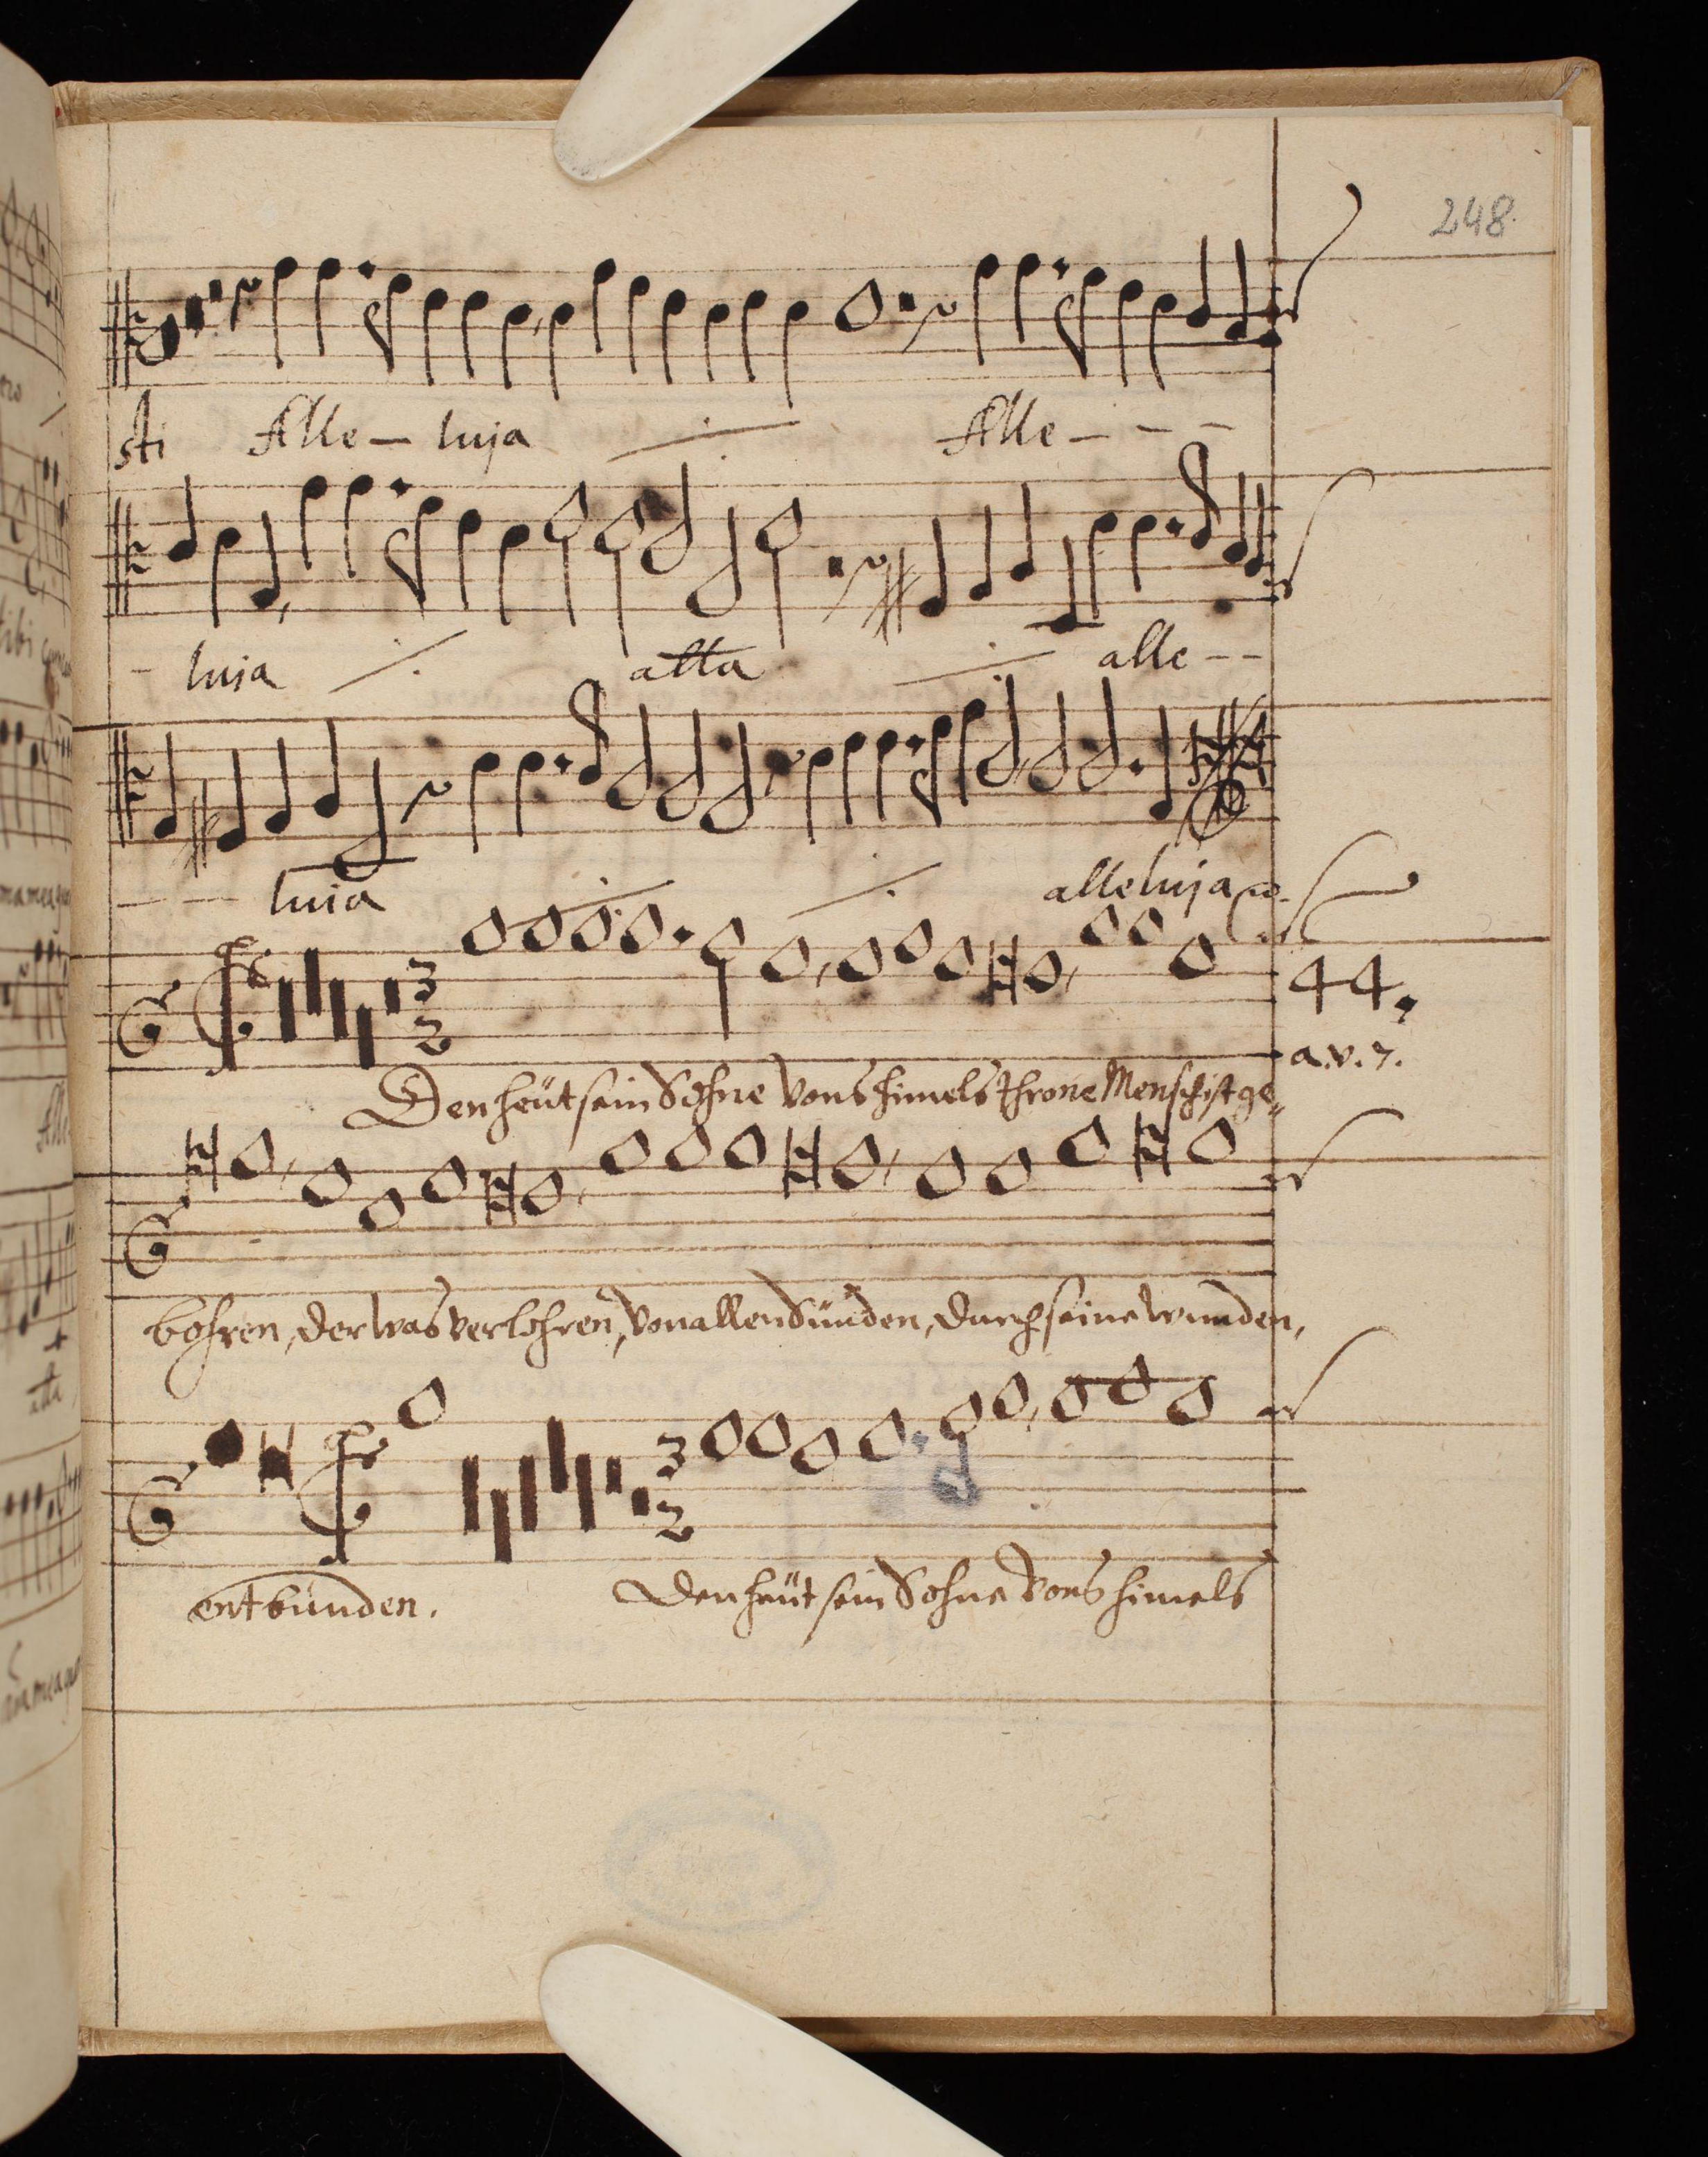 248.
sti Alle- luja Alle - - -
- luja alla alle - -
- - luia alleluja
3 2
44.
a.v.7.
Den heüt sein Sohne vons himels throne Mensch ist ge-
bohren, der was verlohren, von allen Sünden, durch seine wunden,
3 2
entbunden. Den heüt sein Sohne vons himels